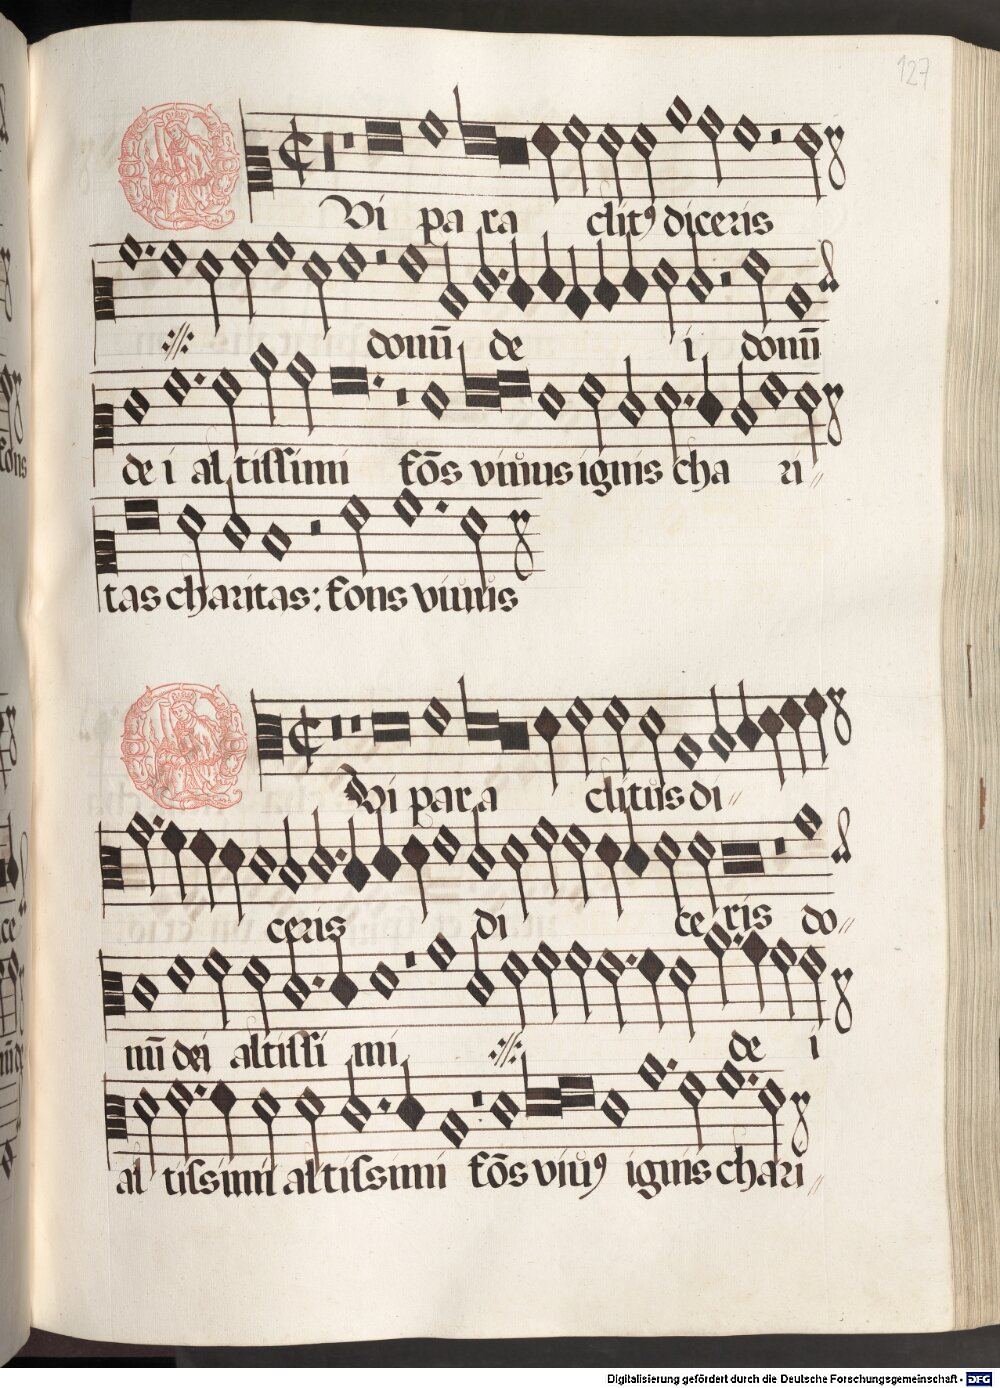 127
Qui pa ra clit⁹ diceris
://: donū de i donū
de i al tissimi fōs viuus ignis cha ri//
tas charitas: fons viuus
Qui para clitus di//
ceris di ce ris do//
nū dei altissi mi ://: de i
al tissimi altissimi fōs viu⁹ ignis chari//
Digitalisierung gefördert durch die Deutsche Forschungsgemeinschaft - DFG